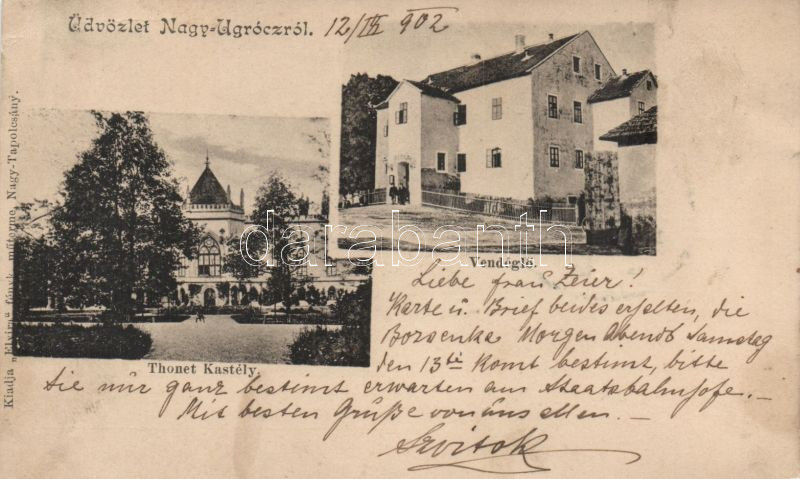 Üdvözlet Nagy-Ugróczról. 12/IX 902
Kiadja "Elvira" fényk. műterme, Nagy-Tapolcsány.
darabanth
Vendéglő.
Thonet Kastély.
Liebe frau Zeier!
Karte u. Brief beides erhalten, die
Borsenka Morgen Abends Samstag
den 13ti Komt bestimt, bitte
Sie nur ganz bestimt erwarten am Staatsbahnhofe.-
Mit besten Grüße von uns allen.-
Szvitok